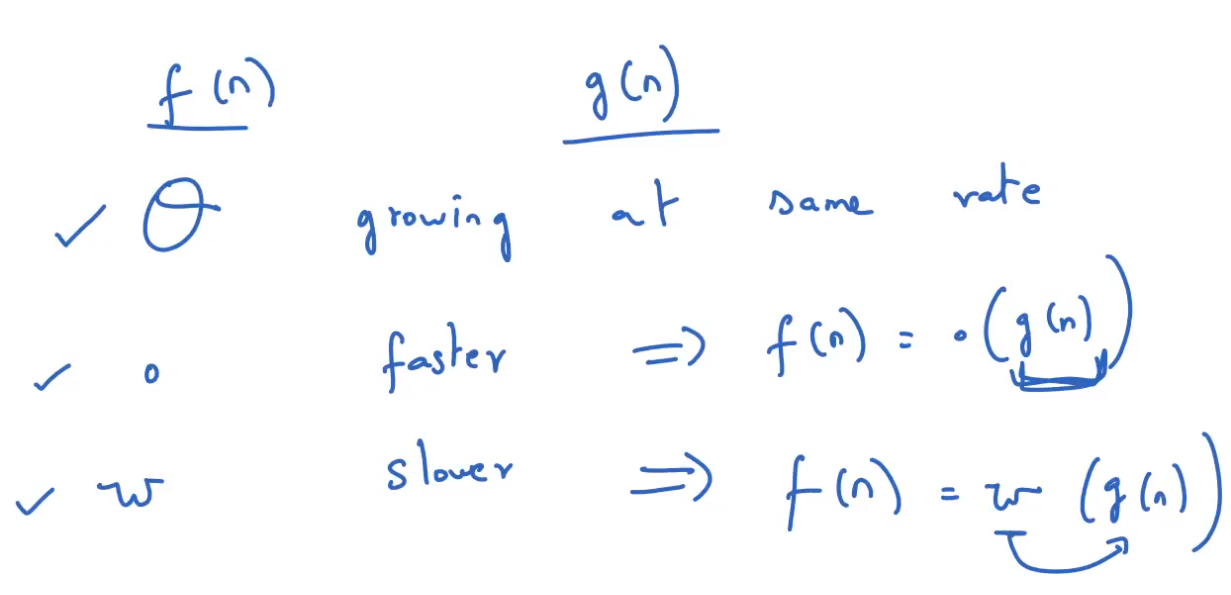 f(n) g(n)
✓ θ growing at same rate
✓ o faster ⇒ f(n) = o(g(n))
✓ w slower ⇒ f(n) = w(g(n))